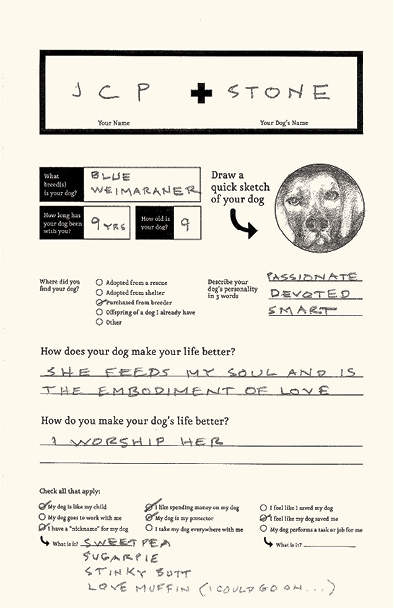 JCP + STONE
Your Name Your Dog's Name
What breed(s) is your dog? BLUE WEIMARANER
How long has your dog been with you? 9 YRS How old is your dog? 9
Draw a
quick sketch
of your dog
Where did you
find your dog?
Adopted from a rescue
Adopted from shelter
Purchased from breeder
Offspring of a dog I already have
Other
Describe your
dog's personality
in 3 words
PASSIONATE
DEVOTED
SMART
How does your dog make your life better?
SHE FEEDS MY SOUL AND IS
THE EMBODIMENT OF LOVE
How do you make your dog's life better?
I WORSHIP HER
Check all that apply:
My dog is like my child
My dog goes to work with me
I have a "nickname" for my dog
What is it? SWEET PEA
SUGARPIE
STINKY BUTT
LOVE MUFFIN (I COULD GO ON...)
I like spending money on my dog
My dog is my protector
I take my dog everywhere with me
I feel like I saved my dog
I feel like my dog saved me
My dog performs a task or job for me
What is it?